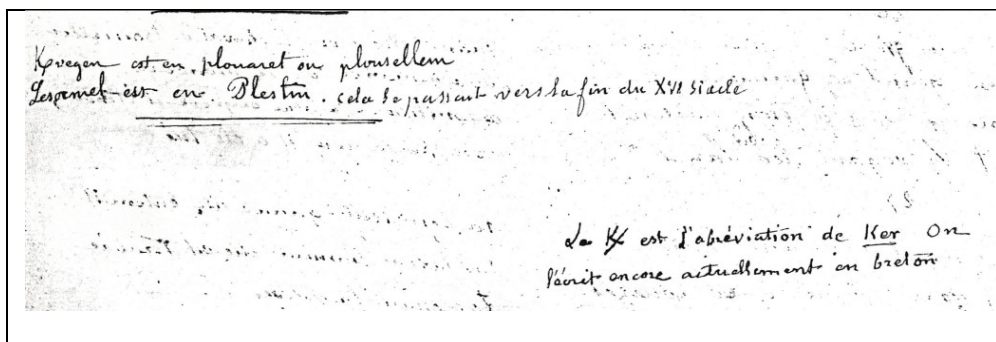 Ꝃvegen est en plouaret ou plousellem
Lespernet est en Plestin. cela se passait vers la fin du XVI siècle
Le Ꝃ est l'abréviation de Ker On
l'écrit encore actuellement en breton